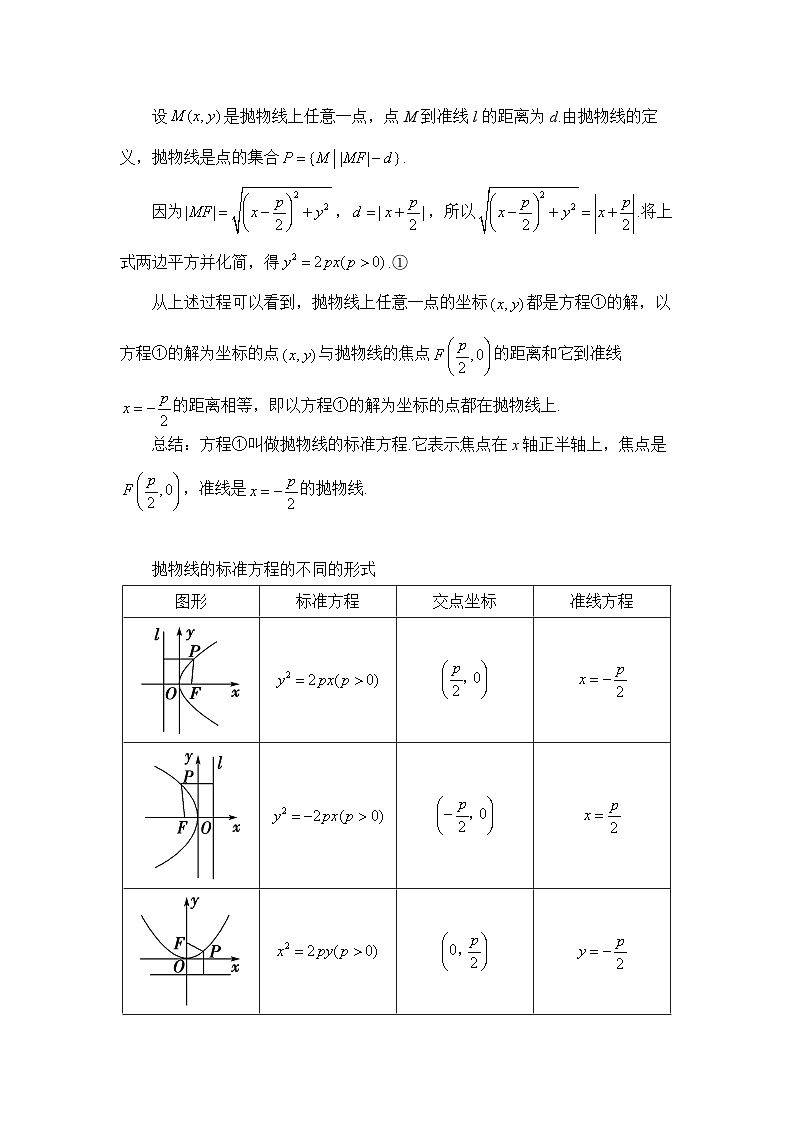 设M(x, y)是抛物线上任意一点，点M到准线l的距离为d.由抛物线的定
义，抛物线是点的集合P={M||MF|−d}.
因为|MF|=√((x−p/2)²+y²)，d=|x+p/2|，所以√((x−p/2)²+y²)=|x+p/2|.将上
式两边平方并化简，得y²=2px(p>0).①
从上述过程可以看到，抛物线上任意一点的坐标(x, y)都是方程①的解，以
方程①的解为坐标的点(x, y)与抛物线的焦点F(p/2,0)的距离和它到准线
x=−p/2的距离相等，即以方程①的解为坐标的点都在抛物线上.
总结：方程①叫做抛物线的标准方程.它表示焦点在x轴正半轴上，焦点是
F(p/2,0)，准线是x=−p/2的抛物线.
抛物线的标准方程的不同的形式
图形 标准方程 交点坐标 准线方程
l y P O F x y²=2px(p>0) (p/2，0) x=−p/2
y l P F O x y²=−2px(p>0) (−p/2，0) x=p/2
y F P O x x²=2py(p>0) (0，p/2) y=−p/2